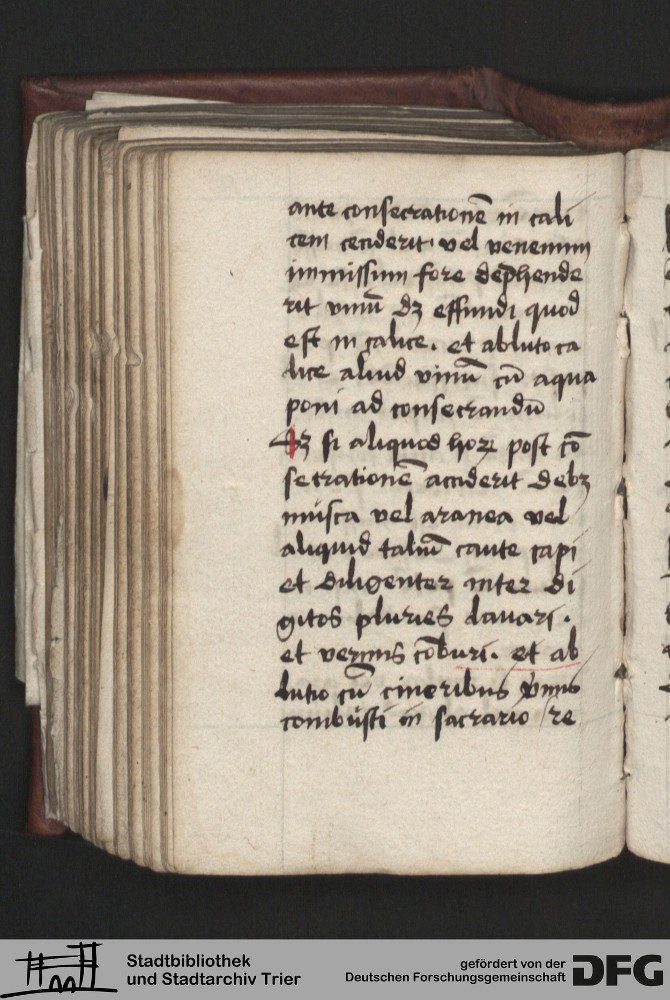 ante consecrationē in cali
cem ceciderit vel venenum
immissum fore dep̄hende
rit vinū dꝫ effundi quod
est in calice. et abluto ca
lice aliud vinū cū aqua
poni ad consecrandū
Sꝫ si aliquod hoꝝ post cō
secrationē acciderit debꝫ
musca vel aranea vel
aliquid taliū caute capi
et diligenter inter di
gitos pluries lavari.
et vermis cōburi. et ab
lutio cū cineribus v̓mis
combusti in sacrario re
Stadtbibliothek
und Stadtarchiv Trier
gefördert von der
Deutschen Forschungsgemeinschaft
DFG